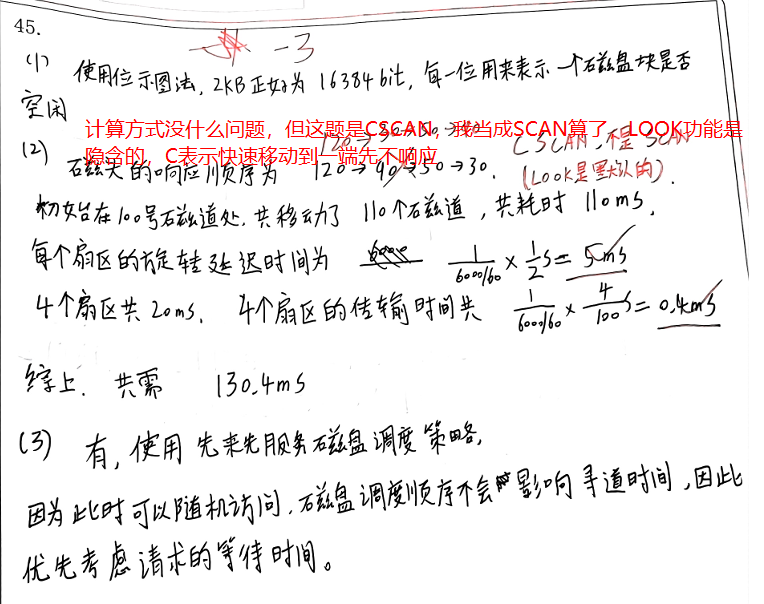 45.
-3
(1) 使用位示图法, 2KB正好为 16384 bit, 每一位用来表示一个磁盘块是否
空闲
计算方式没什么问题，但这题是CSCAN，我当成SCAN算了，LOOK功能是
隐含的，C表示快速移动到一端先不响应
CSCAN, 不是 SCAN
(LOOK是默认的).
(2) 磁头的响应顺序为 120→90→50→30.
初始在100号磁道处. 共移动了 110个磁道, 共耗时 110ms.
每个扇区的旋转延迟时间为 1/6000/60 × 1/2 s = 5ms
4个扇区共 20ms. 4个扇区的传输时间共 1/6000/60 × 4/100 s = 0.4ms
综上. 共需 130.4ms
(3) 有, 使用 先来先服务磁盘调度策略,
因为此时可以随机访问, 磁盘调度顺序不会影响寻道时间, 因此
优先考虑请求的等待时间。